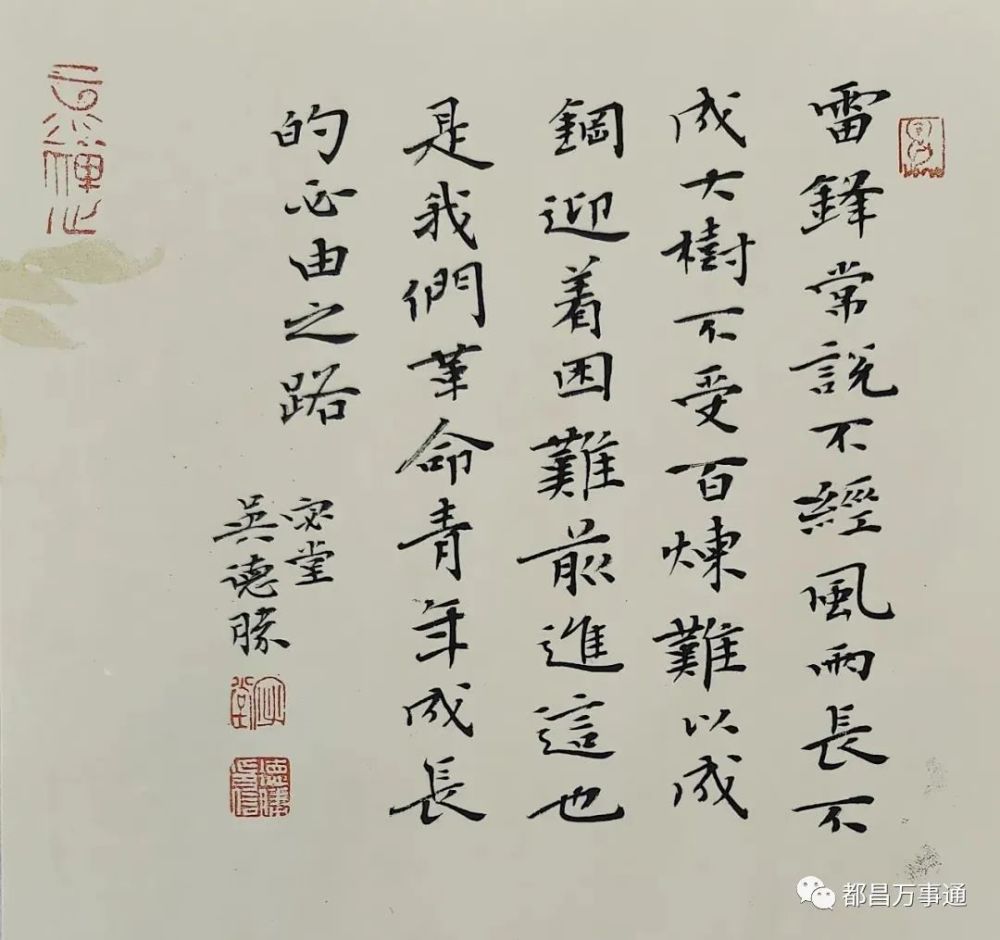 雷鋒常説不經風雨長不
成大樹不受百煉難以成
鋼迎着困難前進這也
是我們革命青年成長
的必由之路
堂
吳德勝
德勝印信
都昌万事通